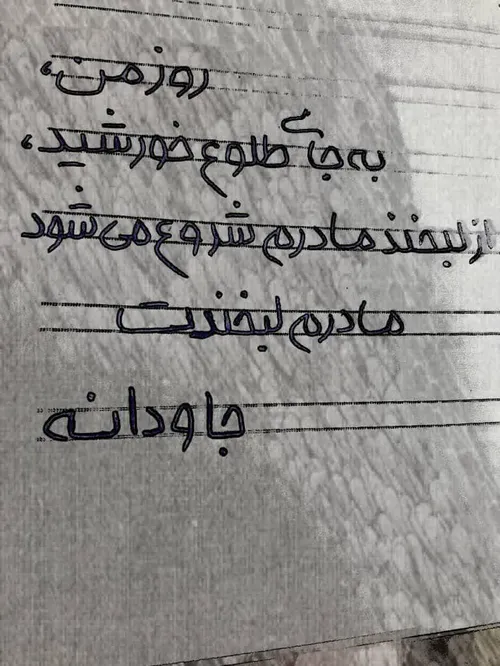 روز من،
به جای طلوع خورشید،
از لبخند مادرم شروع می شود
مادرم لبخندت
جاودانه